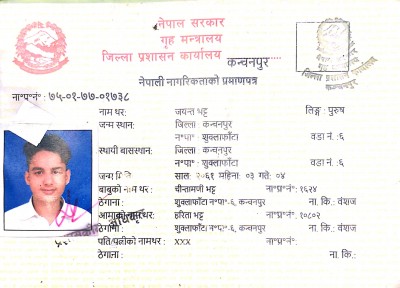 नेपाल सरकार
गृह मन्त्रालय
जिल्ला प्रशासन कार्यालय कन्चनपुर
नेपाली नागरिकताको प्रमाणपत्र
ना॰प्र॰नं॰: ७५-०१-७७-०१७३८
नाम थर: जयन्त भट्ट लिङ्ग: पुरुष
जन्म स्थान: जिल्ला कन्चनपुर
न॰पा॰ शुक्लाफाँटा वडा नं.:६
स्थायी बासस्थान: जिल्ला कन्चनपुर
न॰पा॰ शुक्लाफाँटा वडा नं.:६
जन्म मिति साल: २०६१ महिना: ०३ गते: ०४
बाबुको नाम थर: ना॰प्र॰नं॰: १६२४
ठेगाना: शुक्लाफाँटा न॰पा॰-६, कन्चनपुर ना. कि.: वंशज
आमाको नाम थर: हरिता भट्ट ना॰प्र॰नं॰: १०८०२
ठेगाना: शुक्लाफाँटा न॰पा॰-६, कन्चनपुर ना. कि.: वंशज
पति/पत्नीको नामथर: xxx ना॰प्र॰नं॰:
ठेगाना: ना. कि.: